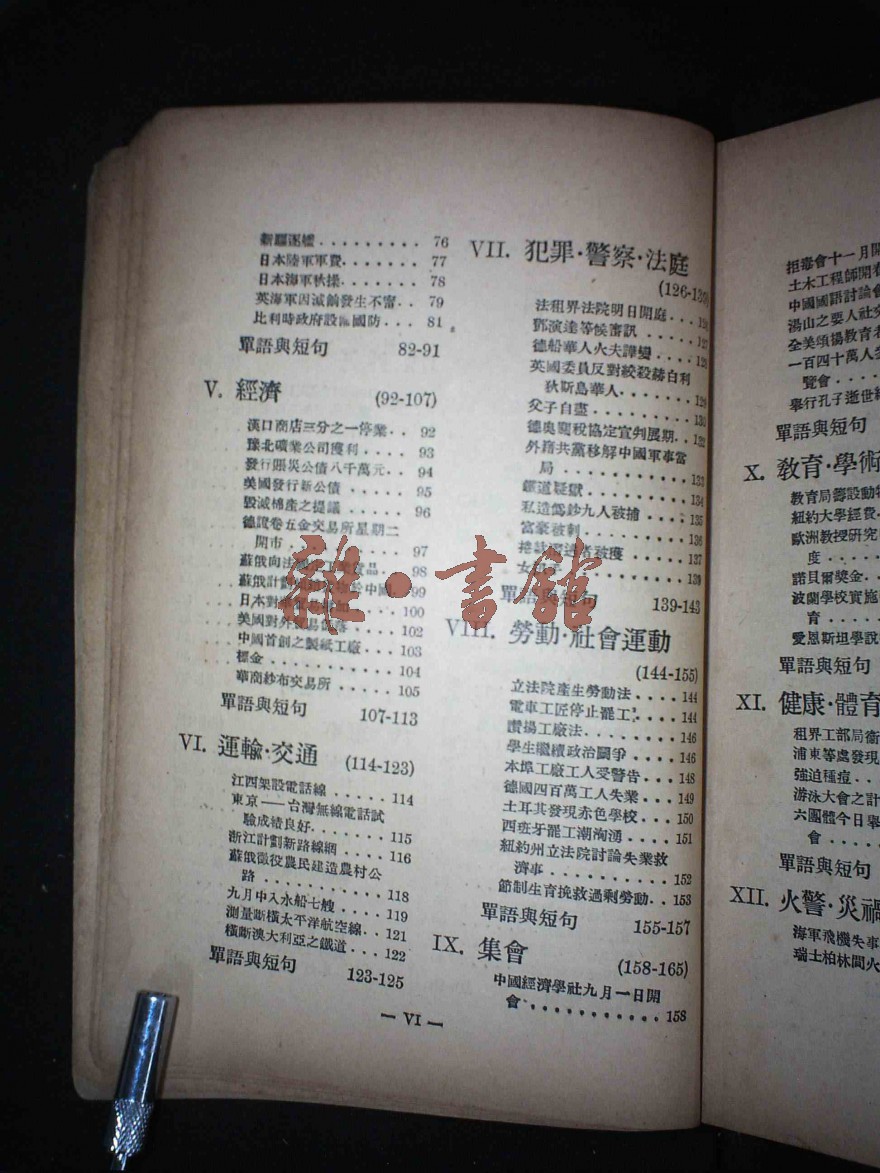 日本陸軍軍費......... 77
日本海軍秋操......... 78
英海軍因減餉發生不甯.. 79
比利時政府設國防... 81
單語與短句 82-91
V. 經濟 (92-107)
漢口商店三分之一停業.. 92
豫北礦業公司獲利.... 93
發行賑災公債八千萬元.. 94
美國發行新公債..... 95
毀滅棉產之提議..... 96
德證卷五金交易所星期二
開市........... 97
蘇俄向法品.. 98
蘇俄計劃中國.. 99
日本對..... 100
美國對外貿易.... 102
中國首創之製紙工廠... 103
標金............ 104
華商紗布交易所..... 105
單語與短句 107-113
VI. 運輸·交通 (114-123)
江西架設電話線..... 114
東京——台灣無線電話試
驗成績良好........ 115
浙江計劃新路線網.... 116
蘇俄徵役農民建造農村公
路........... 118
九月中入水船七艘.... 119
測量斷橫太平洋航空線.. 121
橫斷澳大利亞之鐵道... 122
單語與短句 123-125
VII. 犯罪·警察·法庭
(126-139)
法租界法院明日開庭... 126
鄧演達等候審訊..... 127
德船華人火夫譁變.... 128
英國委員反對絞殺赫白利
狄斯島華人........ 129
父子自盡......... 130
德奧關稅協定宣判展期.. 132
外籍共黨移解中國軍事當
局........... 133
疑獄......... 134
私造僞鈔九人被捕.... 135
富豪被刺......... 136
被獲.... 137
女........ 139
單語與短句 139-143
VIII. 勞動·社會運動
(144-155)
立法院產生勞動法.... 144
電車工匠停止罷工.... 144
讚揚工廠法....... 146
學生繼續政治鬭爭.... 146
本埠工廠工人受警告... 148
德國四百萬工人失業... 149
土耳其發現赤色學校... 150
西班牙罷工潮洶湧.... 151
紐約州立法院討論失業救
濟事.......... 152
節制生育挽救過剩勞動.. 153
單語與短句 155-157
IX. 集會 (158-165)
中國經濟學社九月一日開
會............ 158
— VI —
雜·書館
拒毒會十一月開
土木工程師開春
中國國語討論會
湯山之要人社交
全美頌揚教育者
一百四十萬人
覽會
舉行孔子逝世
單語與短句
X. 教育·學術
教育局籌設動物
紐約大學經費
歐洲教授研究
度
諾貝爾獎金
波蘭學校實施
育
愛恩斯坦學說
單語與短句
XI. 健康·體育
租界工部局衞
浦東等處發現
強迫種痘
游泳大會之計
六團體今日舉
會
單語與短句
XII. 火警·災禍
海軍飛機失事
瑞士柏林間火